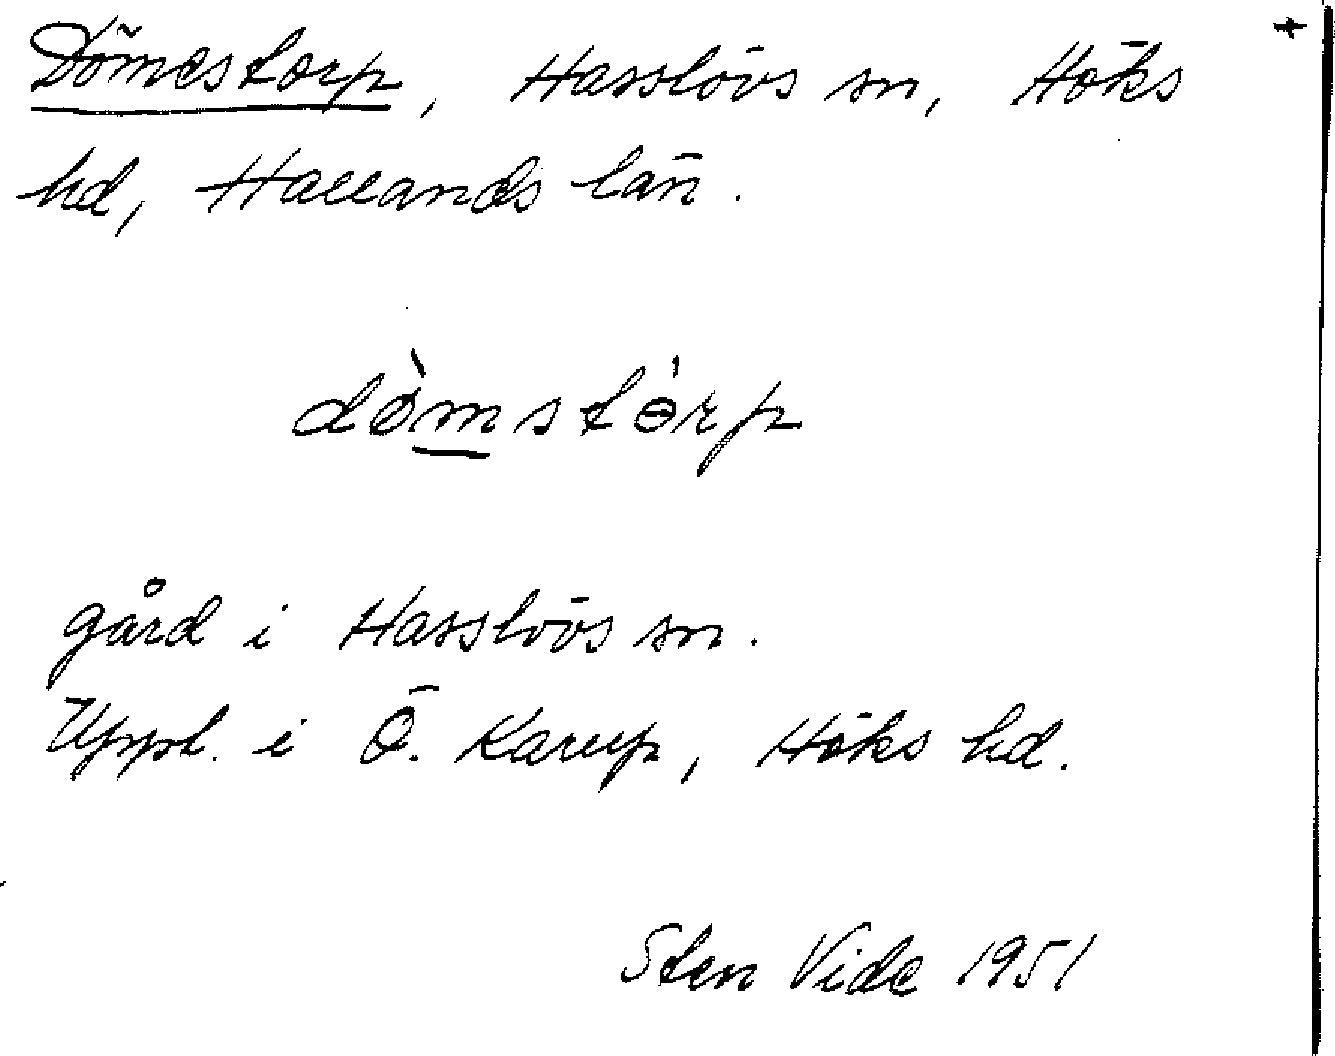 Dömestorp, Hasslövs sn, Höks +
hd, Hallands län.
dòmstɵ̇rp
gård i Hasslövs sn.
Uppt. i Ö. Karup, Höks hd.
Sten Vide 1951